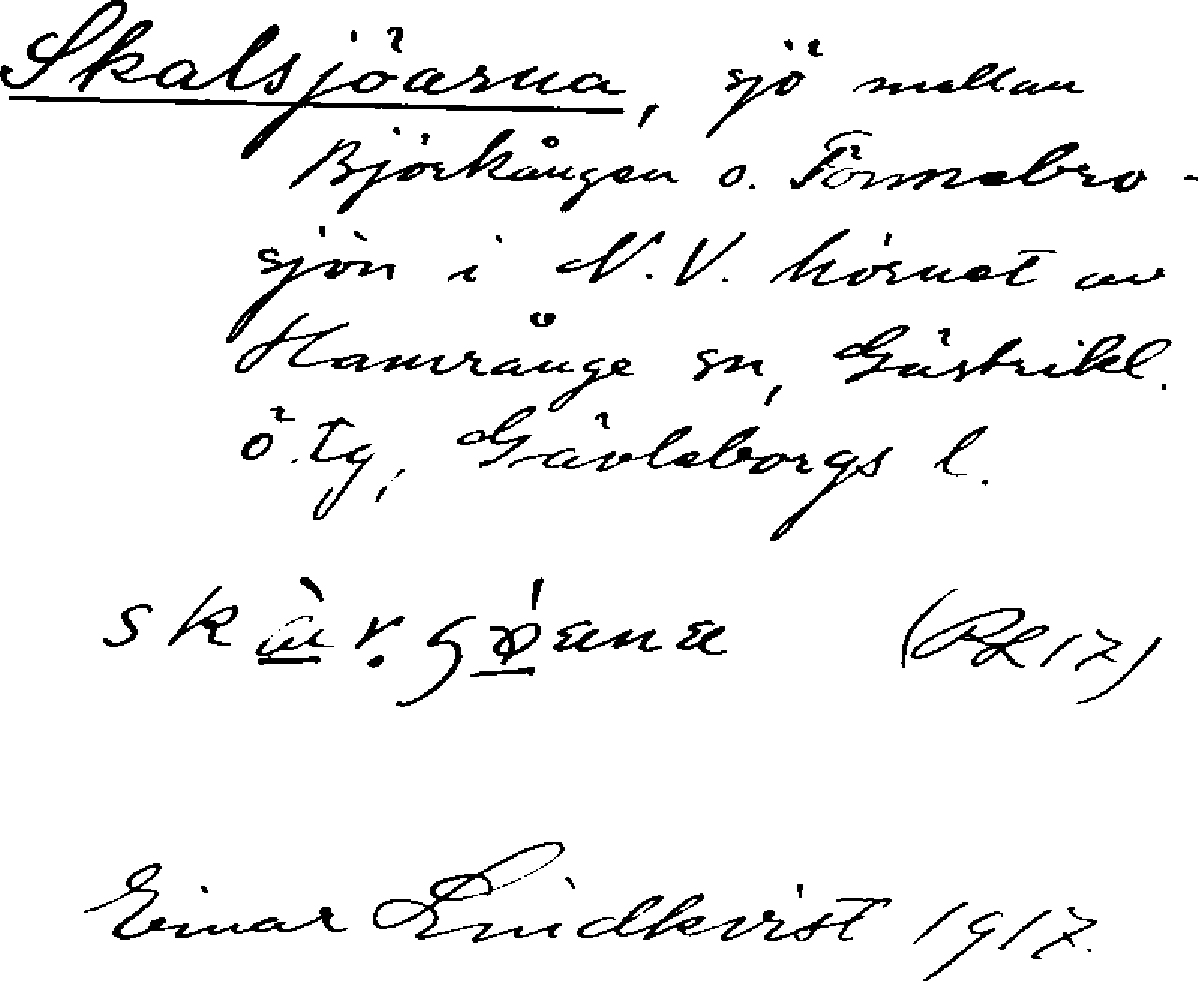 Skalsjöarna, sjö mellan
Björkången o. Tönnebro-
sjön i N.V. hörnet av
Hamrånge sn, Gästrikl.
ö. tg, Gävleborgs l.
(RL 17)
Einar Lindkvist 1917.